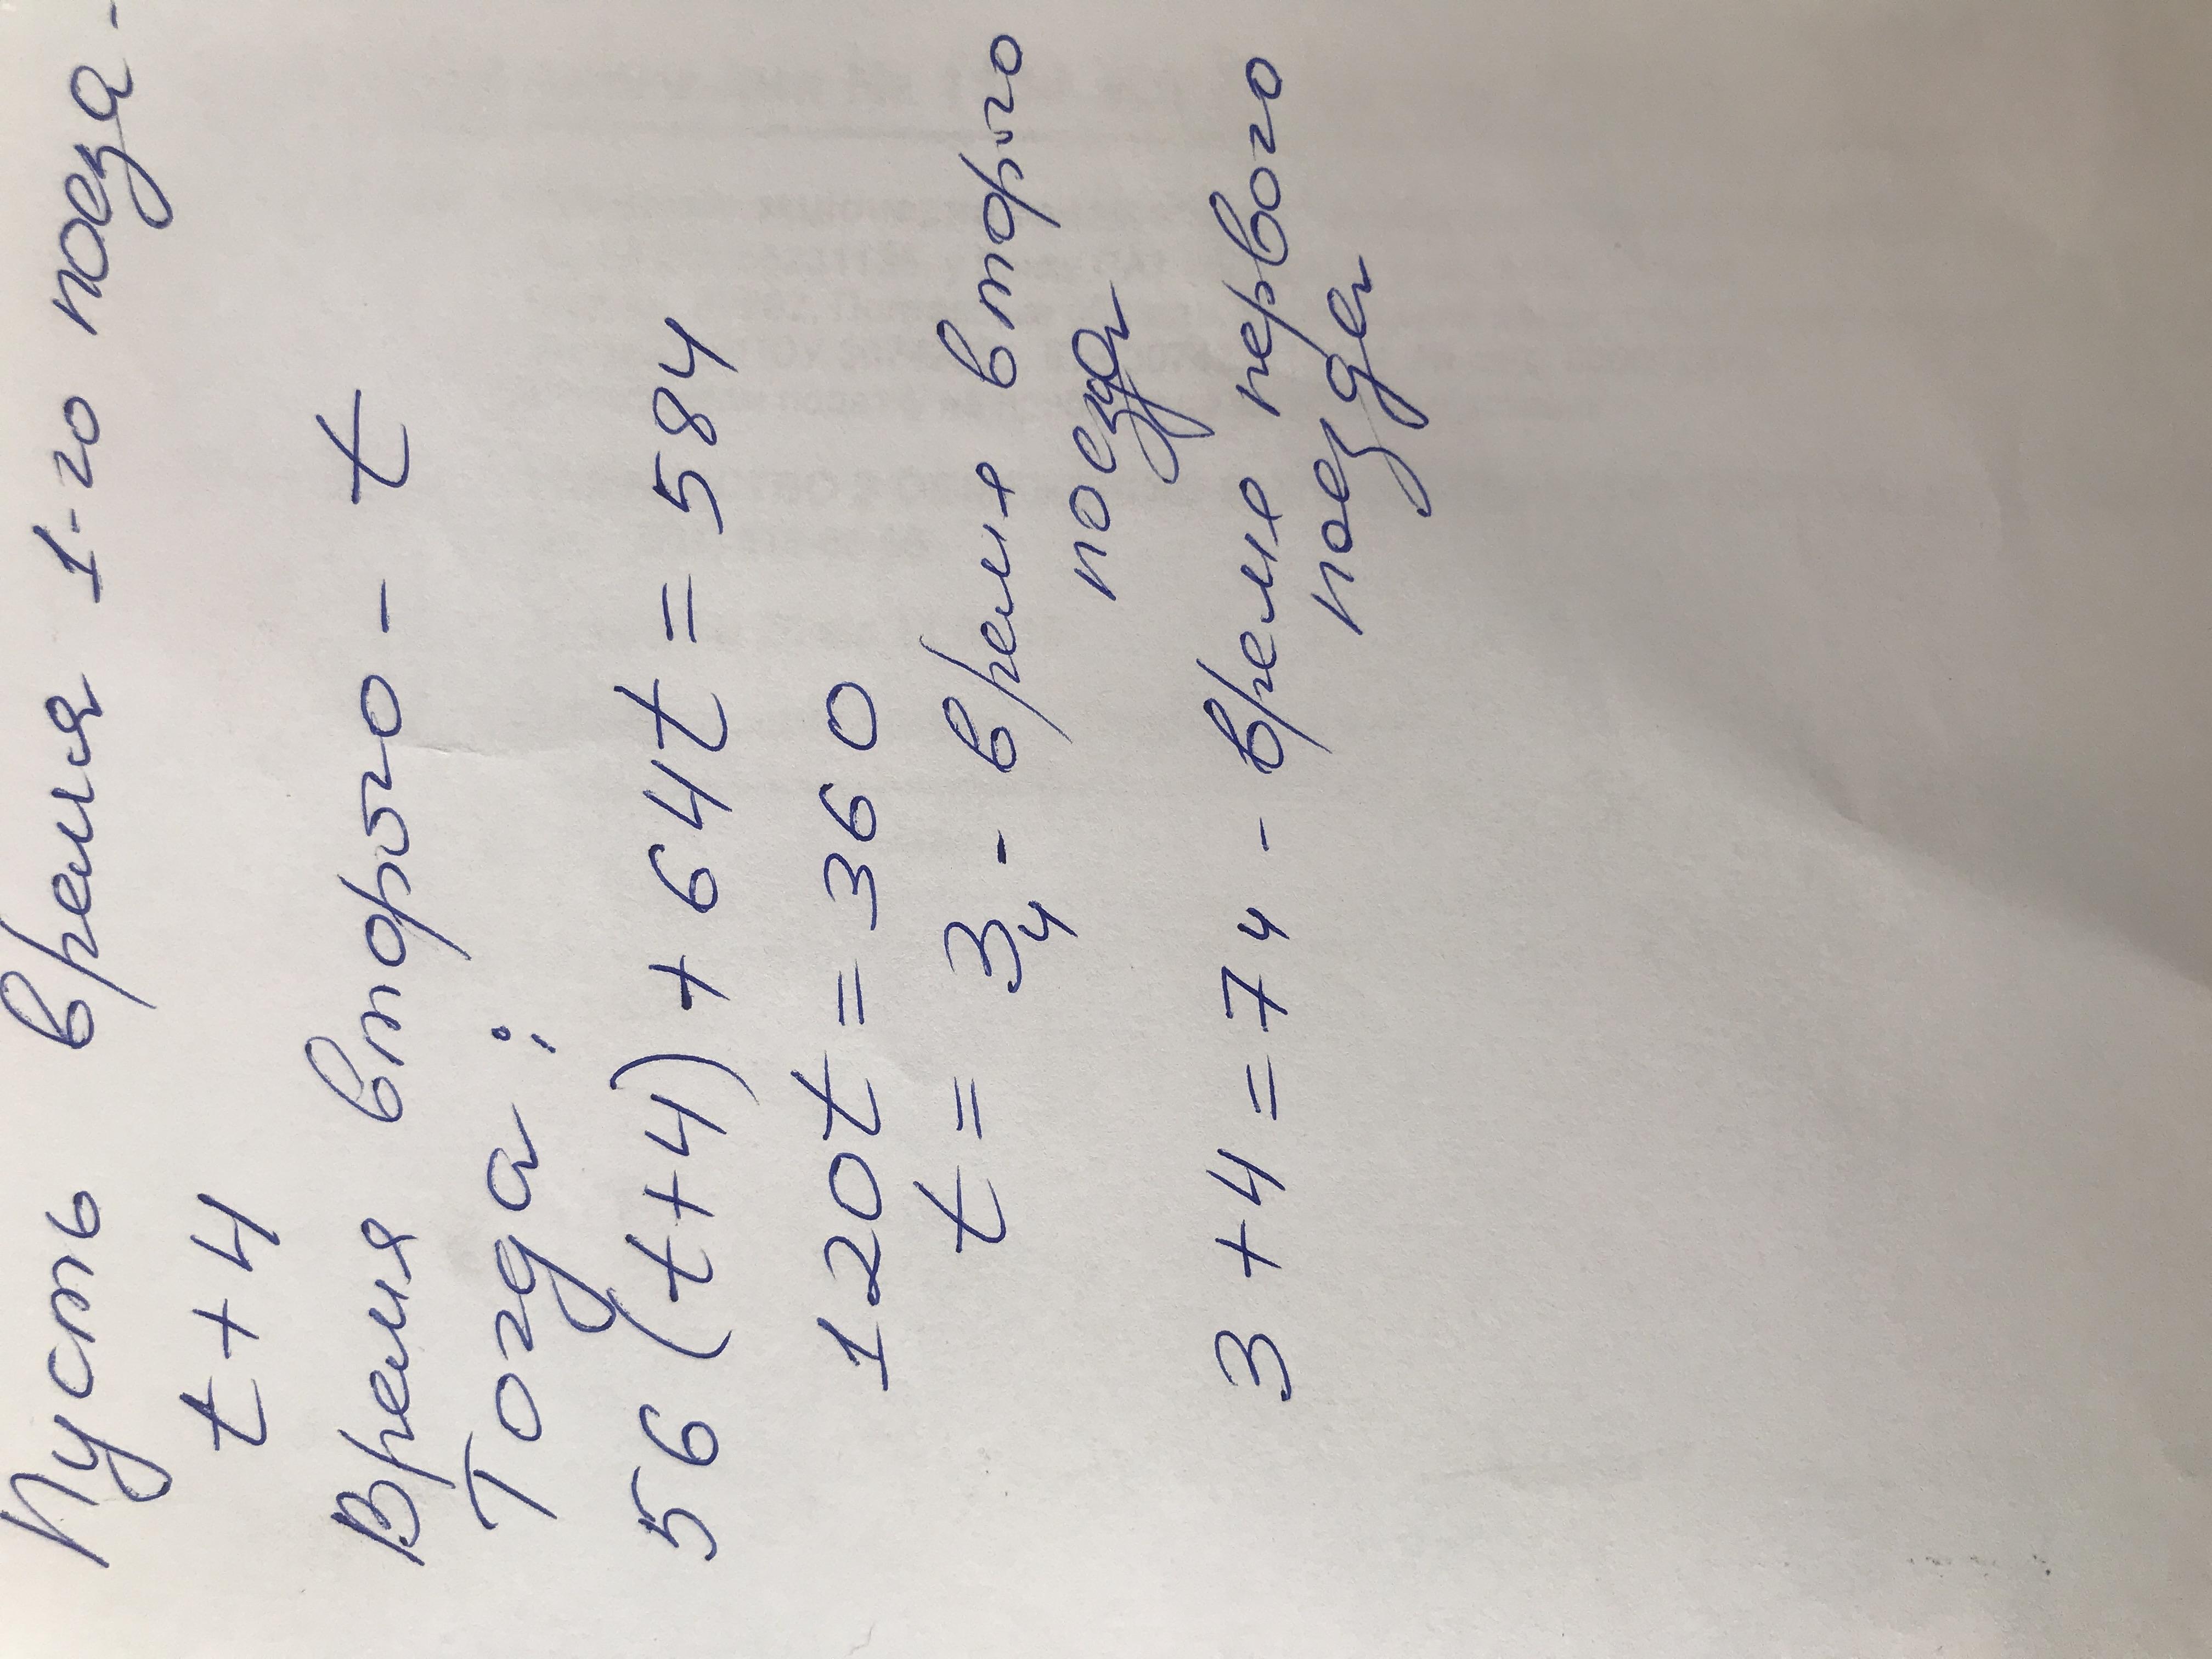 Пусть время 1-го поезда -
t+4
Время второго - t
Тогда:
56(t+4)+64t=584
120t=360
t= 3ч - время второго
поезда
3+4=7ч - время первого
поезда